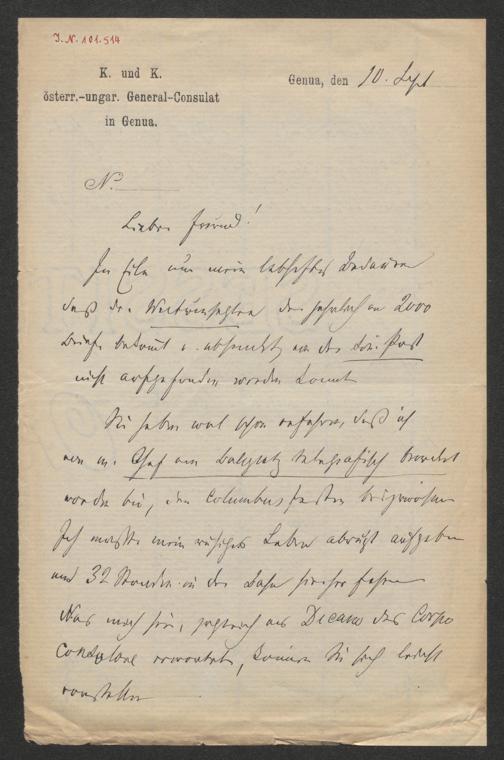 J.N. 101.514
K. und K.
österr.-ungar. General-Consulat
in Genua.
Genua, den 10. Sept
N.
Lieber Freund!
In Eile nur mein lebhaftes Bedauern
daß der der jährlich an 2000
Briefe bekommt u. absendet, von der Post
nicht aufgefunden werden konnte
Sie haben wol schon erfahren, daß ich
von m. Chef am Ballplatz telegrafisch beordert
worden bin, den Columbusfesten beizuwohnen
Ich mußte mein ruhiges Leben abrupt aufgeben
und 32 Stunden in der Bahn hierher fahren
Was mich hier, zugleich als Decano des Corpo
Consolare erwartet, können Sie sich leicht
vorstellen